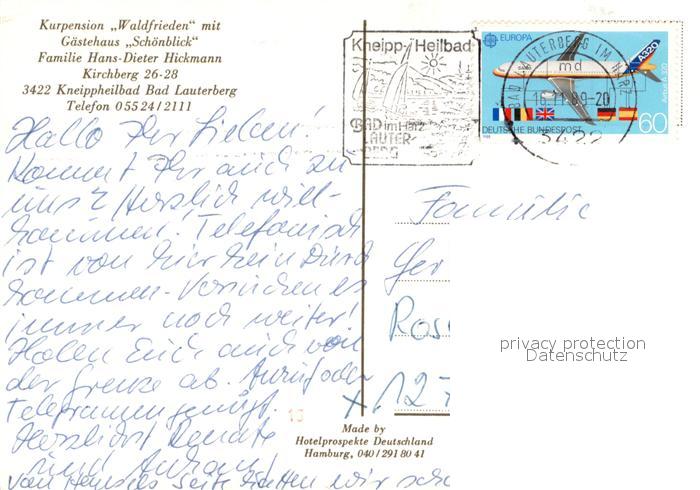 Kurpension „Waldfrieden" mit
Gästehaus „Schönblick"
Familie Hans-Dieter Hickmann
Kirchberg 26-28
3422 Kneippheilbad Bad Lauterberg
Telefon 05524/2111
Kneipp-Heilbad
BAD im Harz
LAUTER-
BERG
EUROPA
A320
Airbus A 320
DEUTSCHE BUNDESPOST
60
BAD LAUTERBERG IM HARZ
md
16.11.89-20
3422
Hallo Ihr Lieben!
Kommt Ihr auch zu
uns? Herzlich will-
kommen! Telefonisch
ist von hier kein Durch
kommen. Versuchen es
immer noch weiter!
Holen Euch auch von
der Grenze ab. Anruf oder
Telegramm genügt.
Herzlichst Renate
und
von seite hatten wir
Familie
Ger
Ros
x/12
privacy protection
Datenschutz
Made by
Hotelprospekte Deutschland
Hamburg, 040/291 80 41